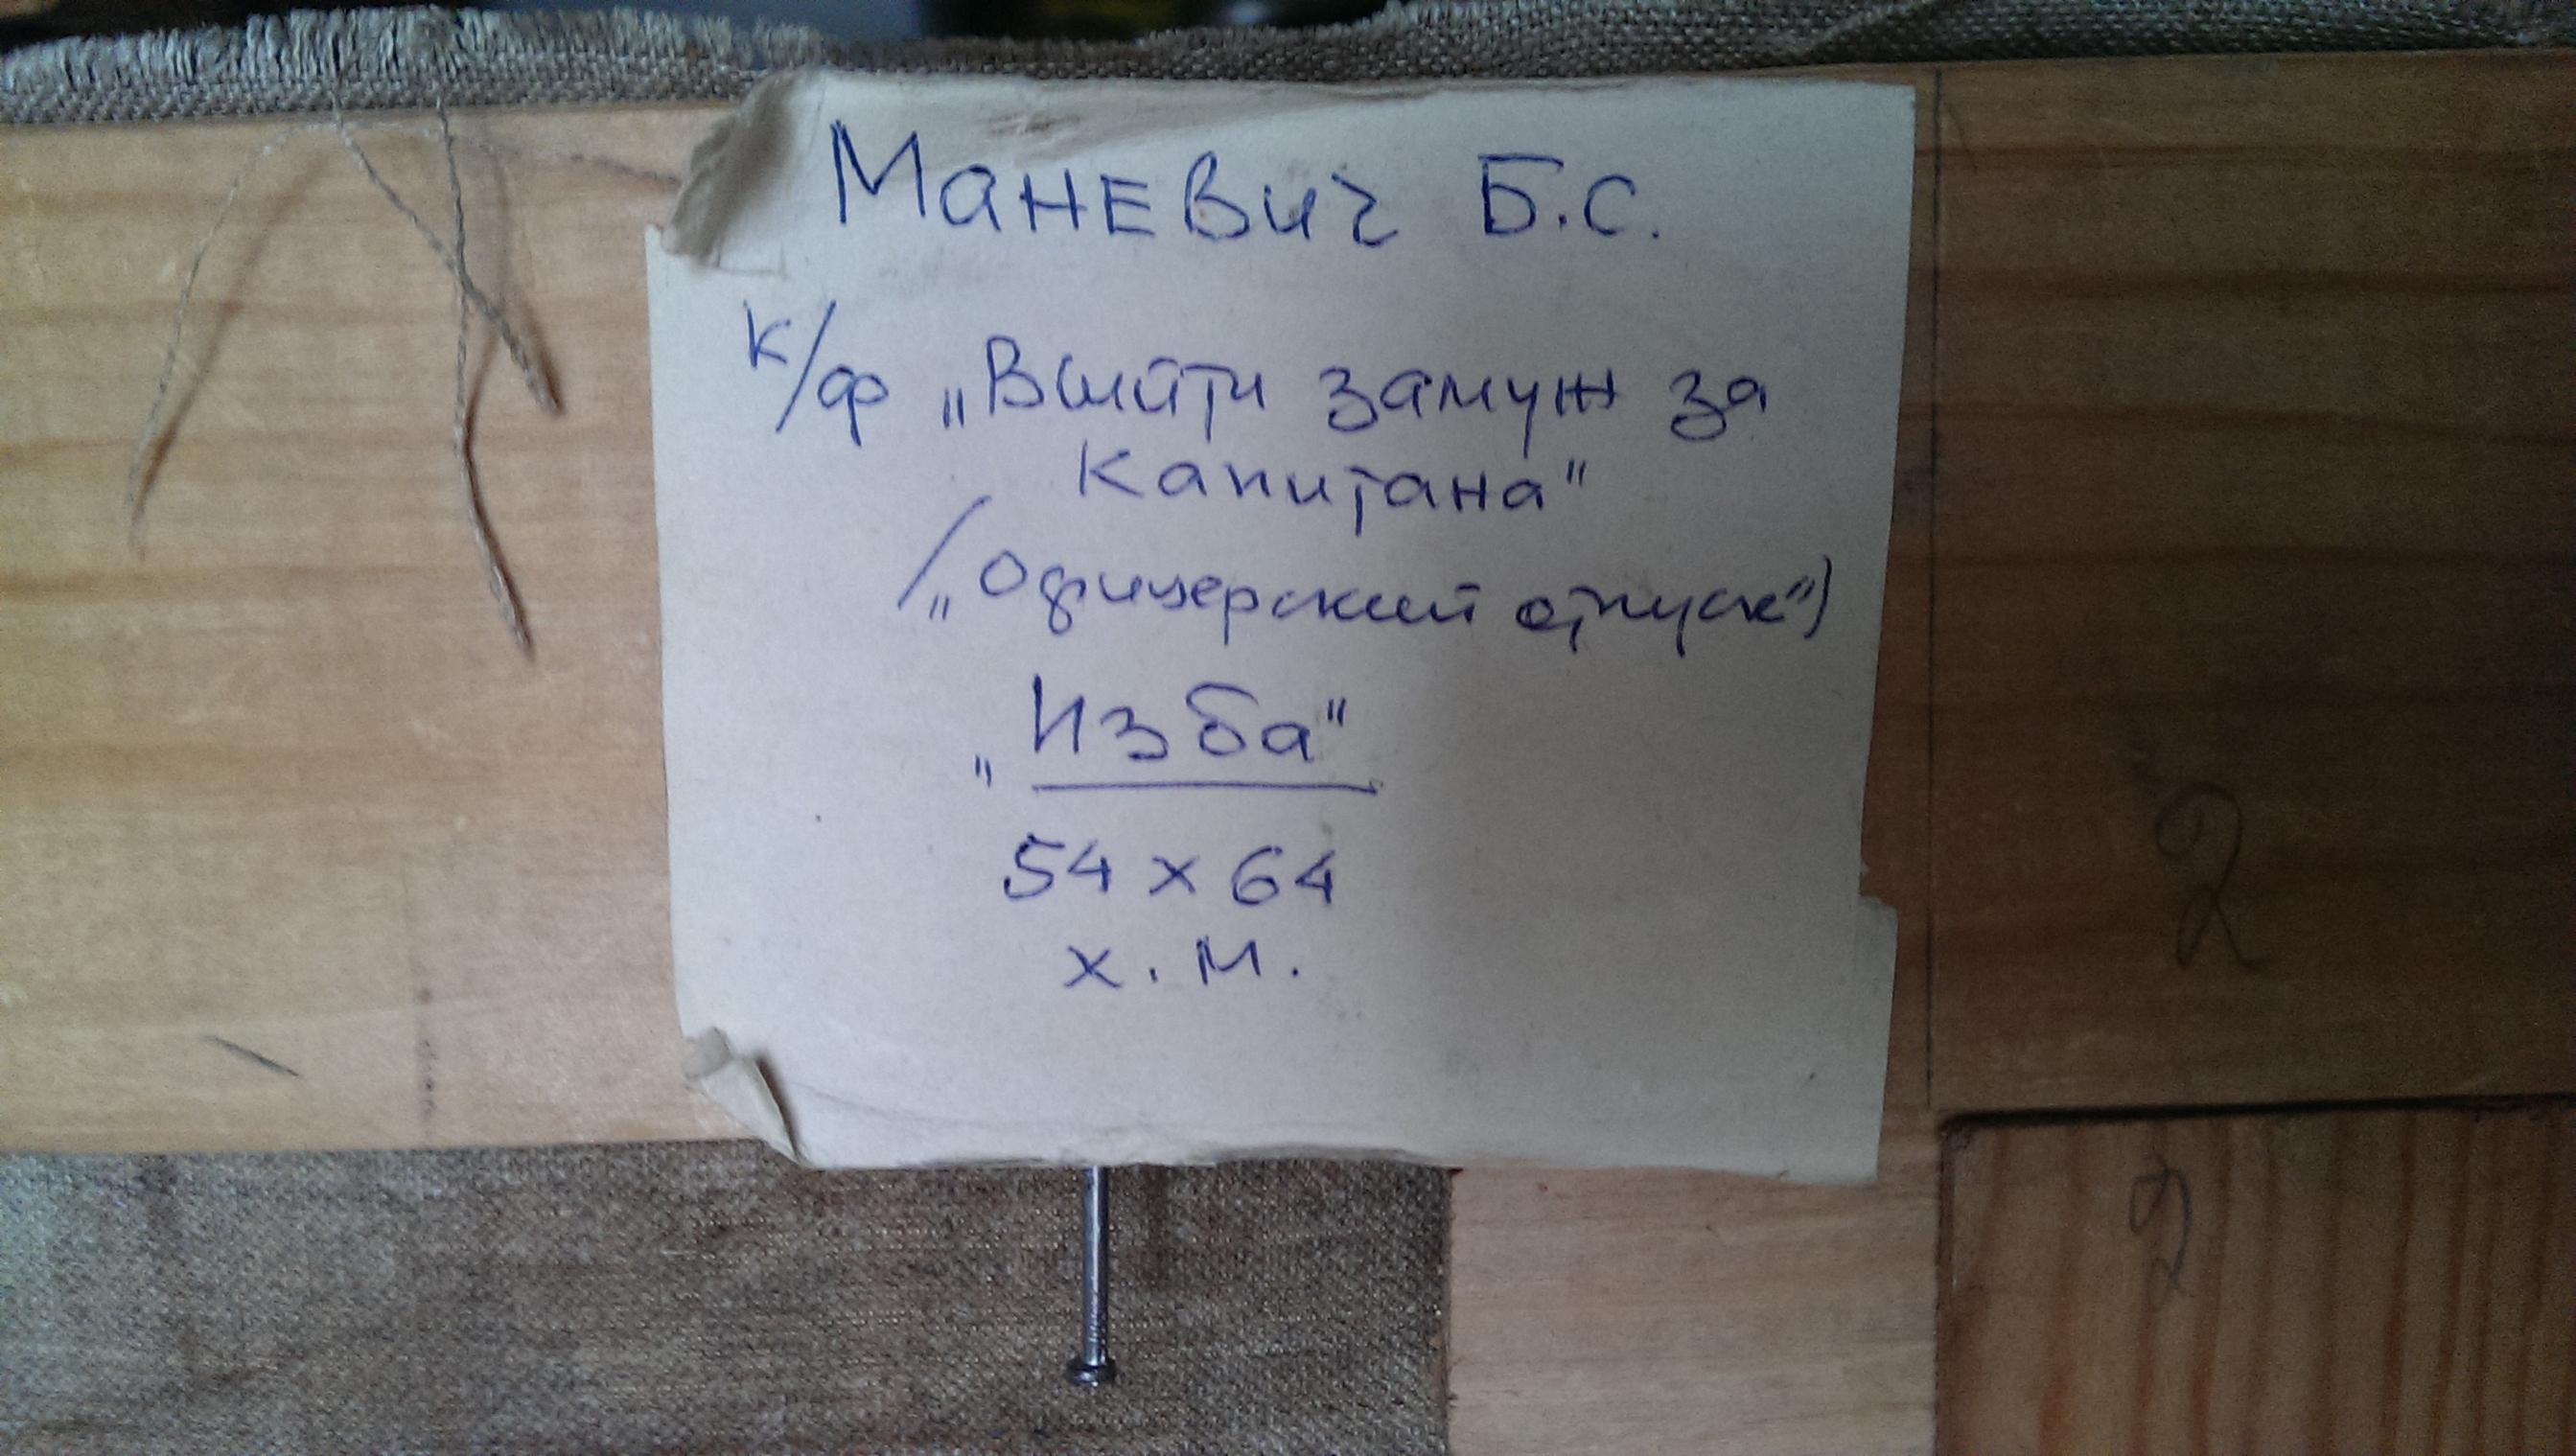 Маневич Б.С.
к/ф „Выйти замуж за
капитана"
/„Офицерский отпуск")
„Изба"
54 х 64
х. м.
2
2